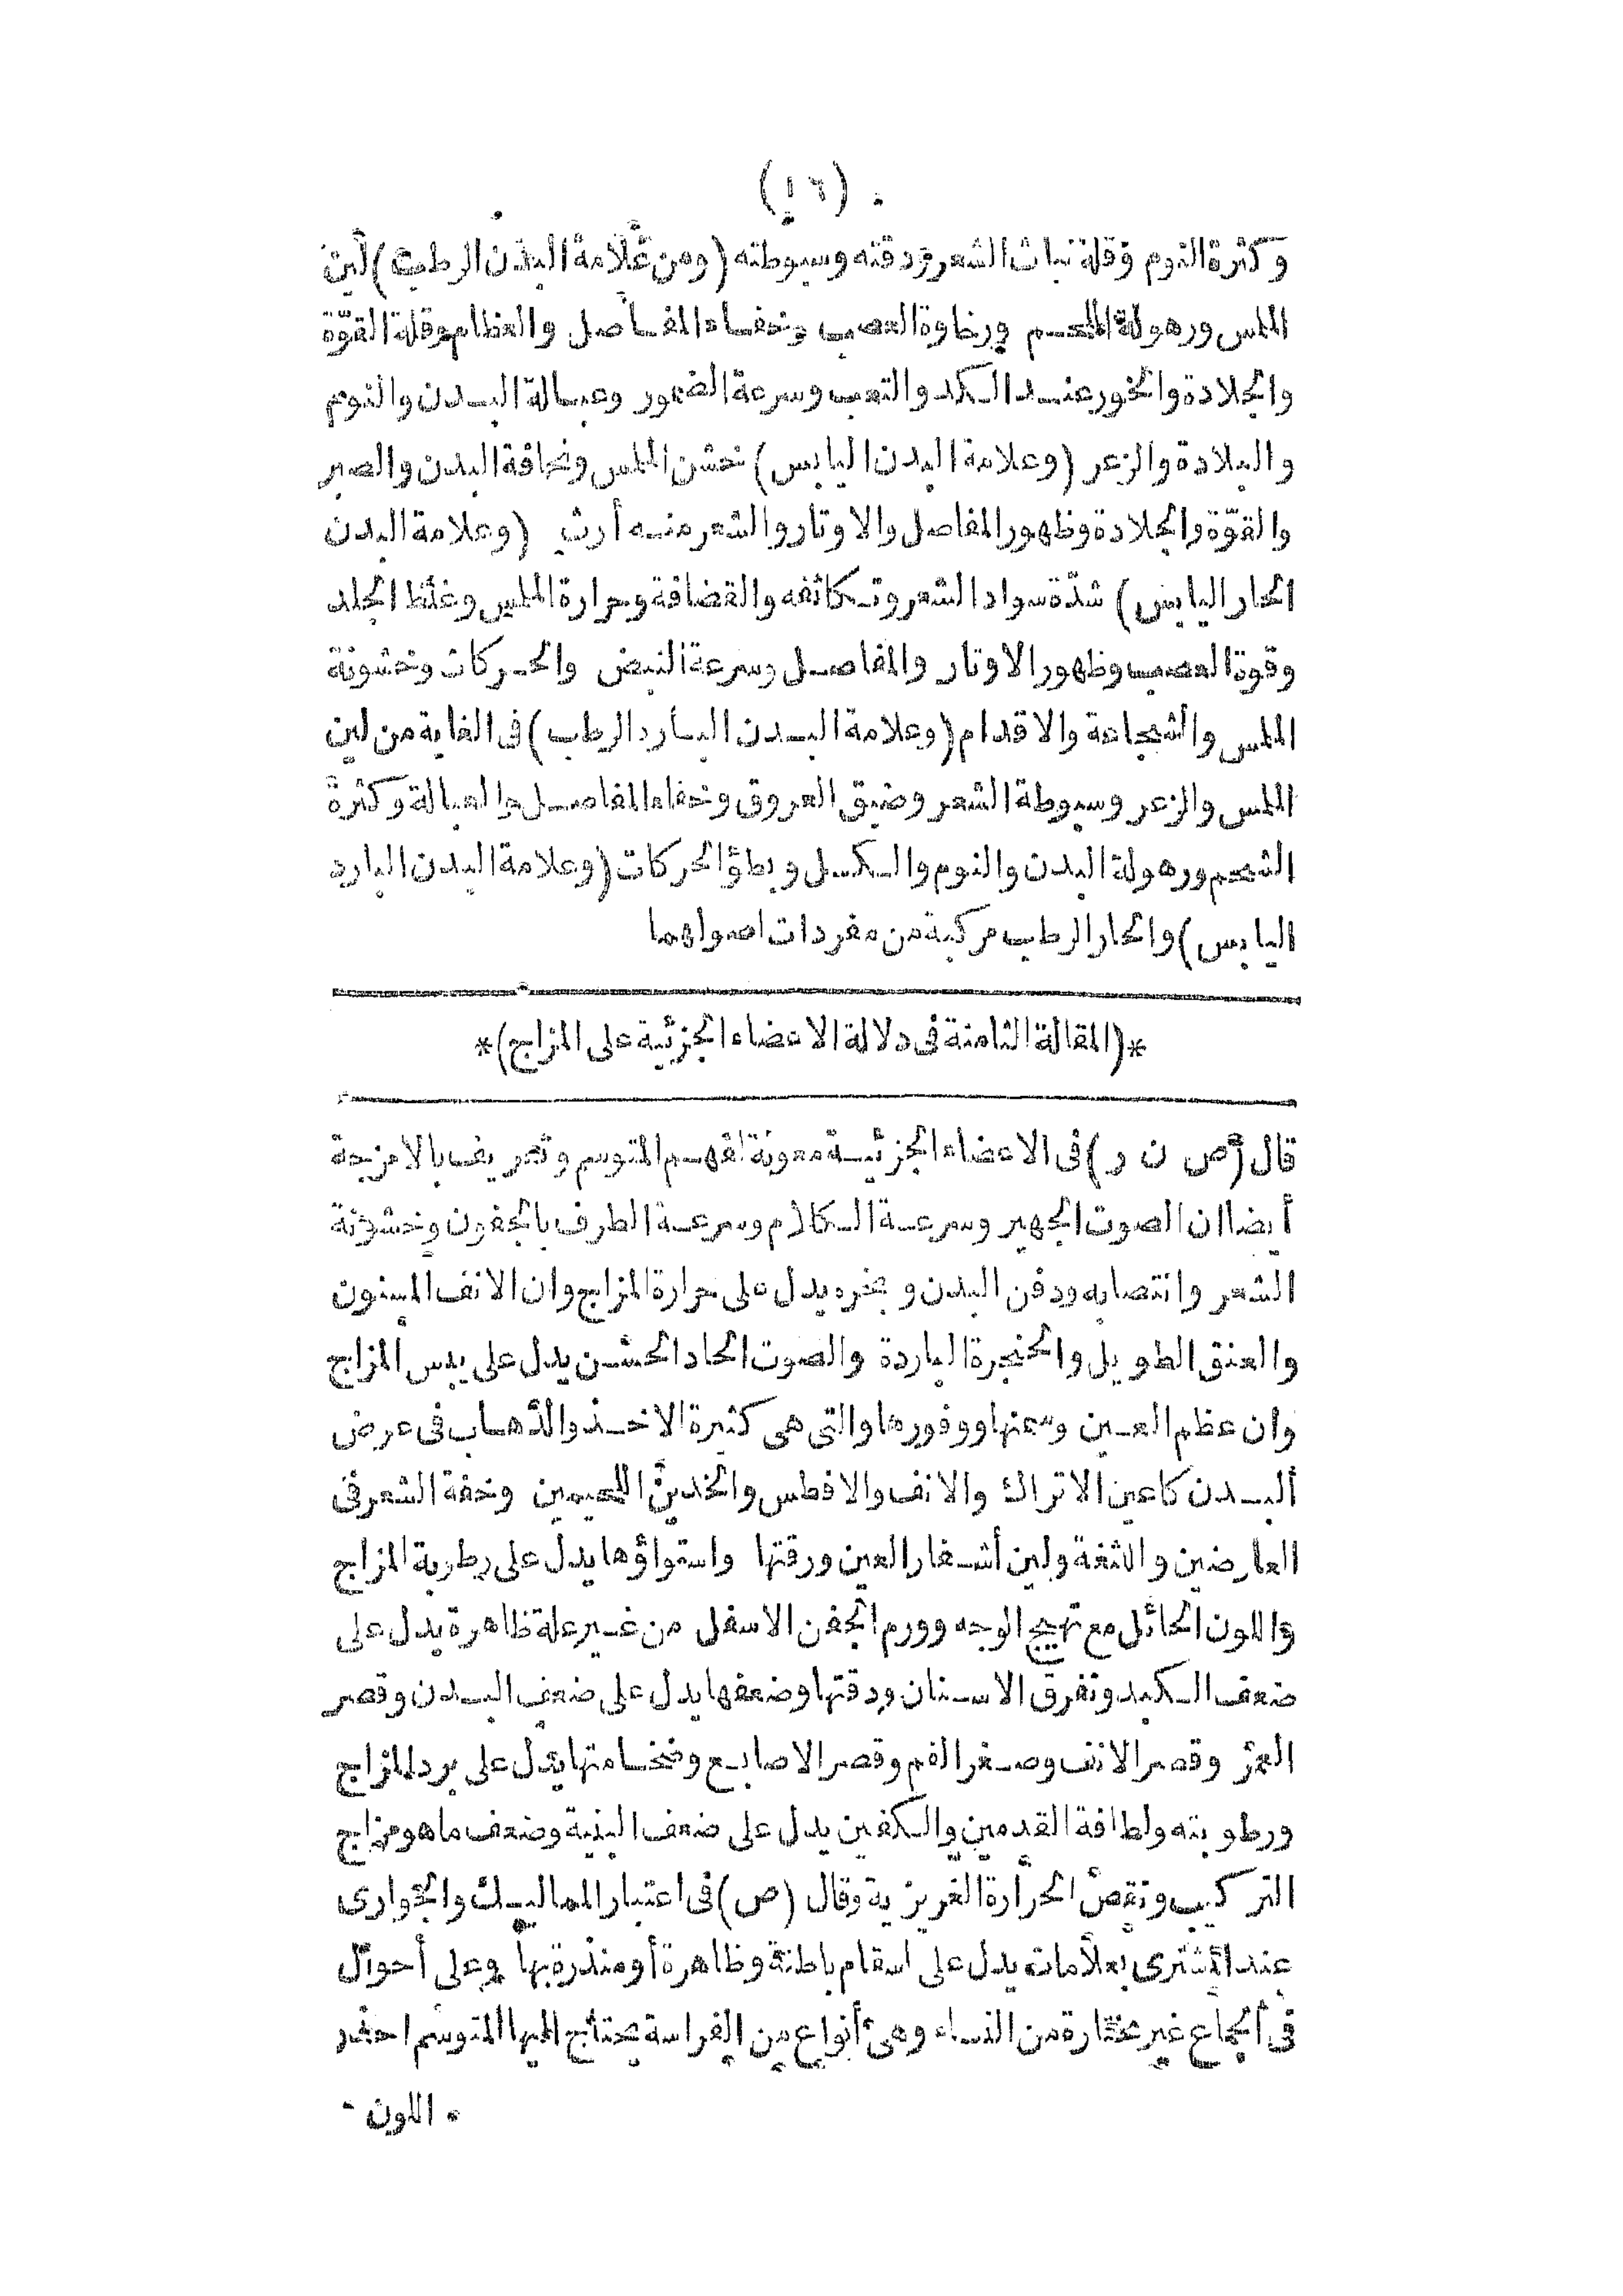 (١٦)
وكثرة النوم وقلة نبات الشعر ودقته وسبوطته (ومن علامة البدن الرطب) لين
الملمس ورهولة اللحم ورخاوة العصب وخفاء المفاصل والعظام وقلة القوّة
والجلادة والخور عند الكد والتعب وسرعة الضمور وعبالة البدن والنوم
والبلادة والزعر (وعلامة البدن اليابس) خشن الملمس ونحافة البدن والصبر
والقوّة والجلادة وظهور المفاصل والاوتار والشعر منه أرث (وعلامة البدن
الحار اليابس) شدّة سواد الشعر وتكاثفه والقضافة وحرارة الملمس وغلظ الجلد
وقوة العصب وظهور الاوتار والمفاصل وسرعة النبض والحركات وخشونة
الملمس والشجاعة والاقدام (وعلامة البدن البارد الرطب) فى الغاية من لين
الملمس والزعر وسبوطة الشعر وضيق العروق وخفاء المفاصل والعبالة وكثرة
الشحم ورهولة البدن والنوم والكسل وبطؤ الحركات (وعلامة البدن البارد
اليابس) والحار الرطب مركبة من مفردات اصولهما
*(المقالة الثامنة فى دلالة الاعضاء الجزئية على المزاج)*
قال (ص ن ر) فى الاعضاء الجزئية معونة لفهم المتوسم وتعريف بالامزجة
أيضا ان الصوت الجهير وسرعة الكلام وسرعة الطرف بالجفون وخشونة
الشعر وانتصابه ودفن البدن وبخره يدل على حرارة المزاج وان الانف المسنون
والعنق الطويل والحنجرة الباردة والصوت الحاد الخشن يدل على يبس المزاج
وان عظم العين وسعتها ووفورها والتى هى كثيرة الاخذ والذهاب فى عرض
البدن كاعين الاتراك والانف والافطس والخدين اللحيمين وخفة الشعر فى
العارضين والثغة ولين أشفار العين ورقتها واستواؤها يدل على رطوبة المزاج
واللون الحائل مع تهيج الوجه وورم الجفن الاسفل من غير علة ظاهرة يدل على
ضعف الكبد وتفرق الاسنان ودقتها وضعفها يدل على ضعف البدن وقصر
وقصر الانف وصغر الفم وقصر الاصابع وضخامتها يدل على برد المزاج
ورطوبته ولطافة القدمين والكفين يدل على ضعف البنية وضعف ما هو مزاج
التركيب ونقص الحرارة الغريزية وقال (ص) فى اعتبار المماليك والجوارى
عند المشترى بعلامات يدل على اسقام باطنة وظاهرة أو منذرة بها وعلى أحوال
فى الجماع غير مختارة من النساء وهى أنواع من الفراسة يحتاج اليها المتوسم احفد
اللون